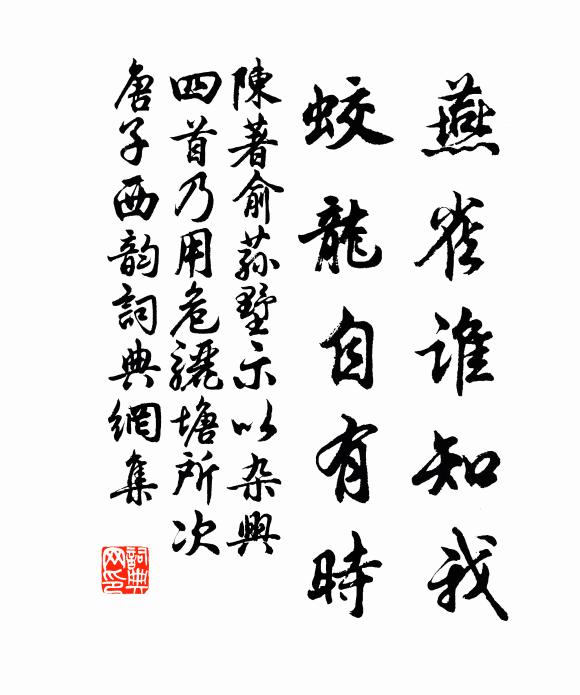 燕雀誰知我
蛟龍自有時
陳著俞蓀墅示以杂興
四首乃用危驪塘所次
唐子西韵詞典網集
詞典網印